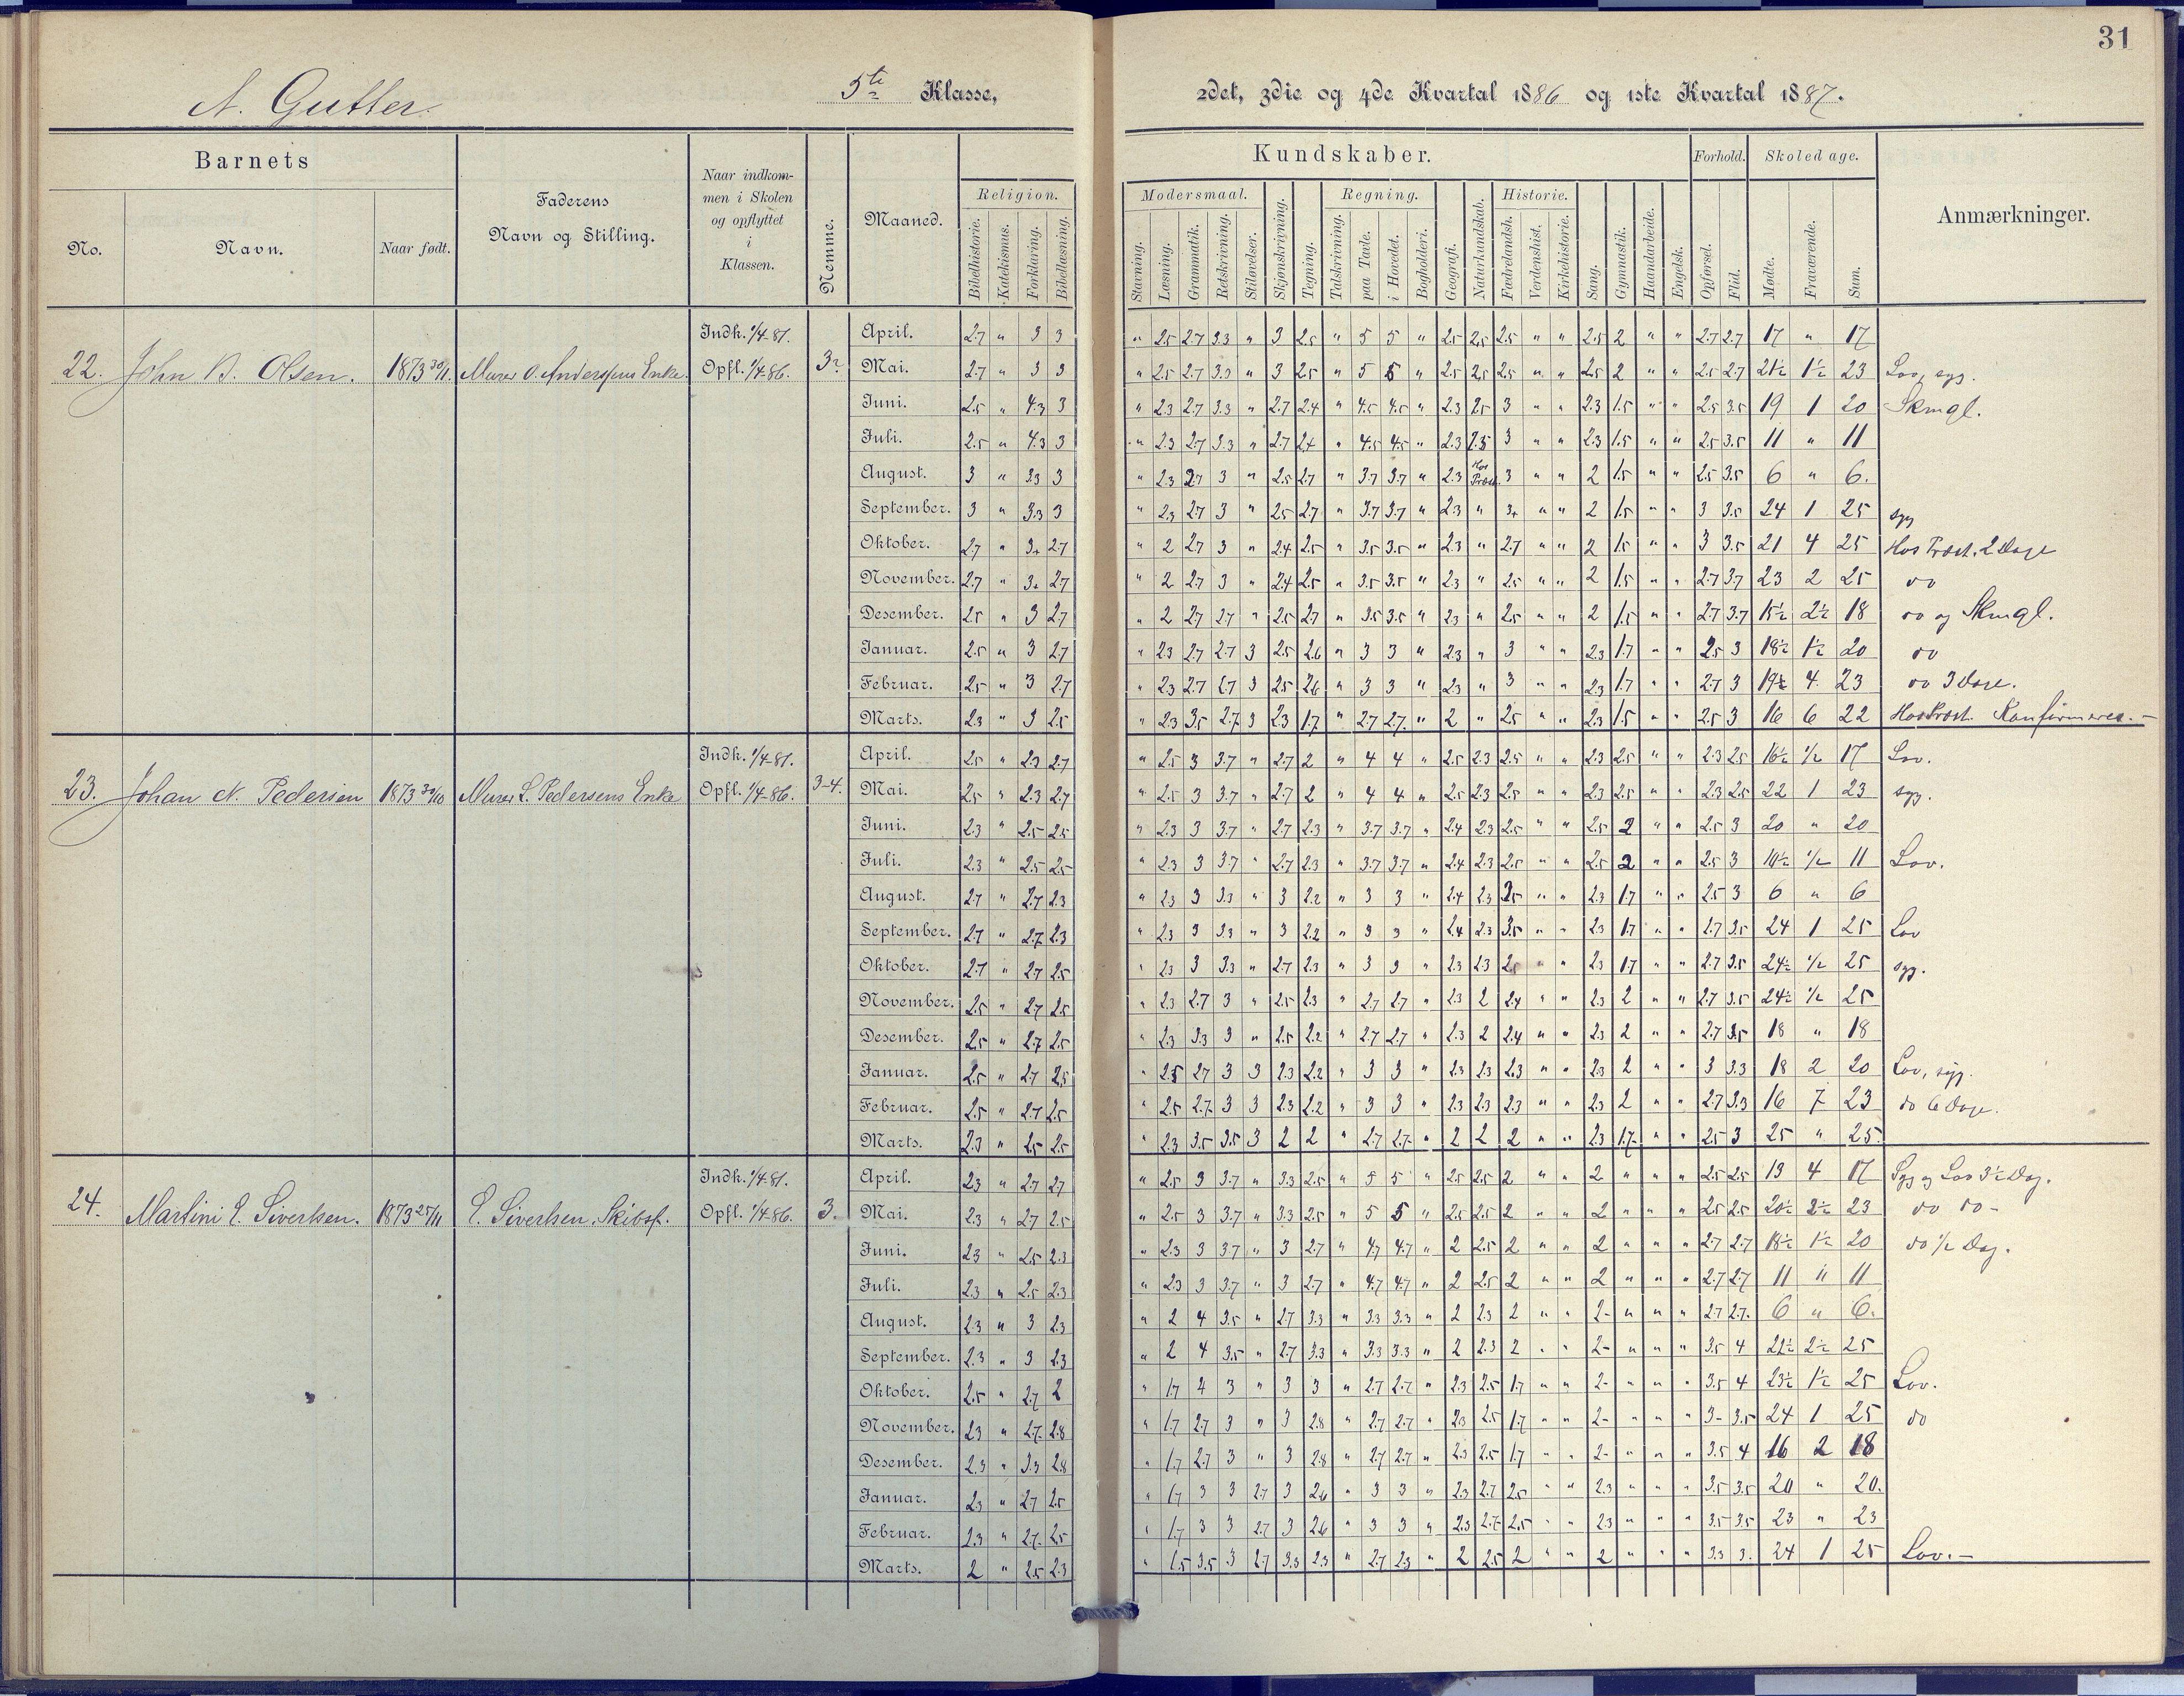 31
A. Gutter.
5te Klasse,
2det, 3die og 4de Kvartal 1886 og 1ste Kvartal 1887.
Barnets
No.
Navn.
Naar født.
Faderens
Navn og Stilling.
Naar indkom-
men i Skolen
og opflyttet
i
Klassen.
Nemme.
Maaned.
Kundskaber.
Religion.
Bibelhistorie.
Katekismus.
Forklaring.
Bibellæsning.
Modersmaal.
Stavning.
Læsning.
Grammatik.
Retskrivning.
Stiløvelser.
Skjønskrivning.
Tegning.
Regning.
Talskrivning.
paa Tavle.
i Hovedet.
Bogholderi.
Geografi.
Naturkundskab.
Historie.
Fædrelandsh.
Verdenshist.
Kirkehistorie.
Sang.
Gymnastik.
Haandarbeide.
Engelsk.
Forhold.
Opførsel.
Flid.
Skoledage.
Mødte.
Fraværende.
Sum.
Anmærkninger.
22. John B. Olsen. 1873 30/11. Murer O. Anderssens Enke. Indk. 1/4-81. Opfl. 1/4-86.
April. 2.7 " 3 3 " 2.5 2.7 3.3 " 3 2.5 " 5 5 " 2.5 2.5 2.5 " " 2.5 2 " " 2.7 2.7 17 " 17
Mai. 2.7 " 3 3 " 2.5 2.7 3.3 " 3 2.5 " 5 5 " 2.5 2.5 2.5 " " 2.5 2 " " 2.5 2.7 21½ 1½ 23 Lov, syg.
Juni. 2.5 " 4.3 3 " 2.3 2.7 3.3 " 2.7 2.4 " 4.5 4.5 " 2.3 2.5 3 " " 2.3 1.5 " " 2.5 3.5 19 1 20 Skmgl.
Juli. 2.5 " 4.3 3 " 2.3 2.7 3.3 " 2.7 2.4 " 4.5 4.5 " 2.3 2.5 3 " " 2.3 1.5 " " 2.5 3.5 11 " 11
August. 3 " 3.3 3 " 2.3 2.7 3 " 2.5 2.7 " 3.7 3.7 " 2.3 Hos Præst. 3 " " 2 1.5 " " 2.5 3.5 6 " 6.
September. 3 " 3.3 3 " 2.3 2.7 3 " 2.5 2.7 " 3.7 3.7 " 2.3 " 3+ " " 2 1.5 " " 3 3.5 24 1 25 syg
Oktober. 2.7 " 3+ 2.7 " 2 2.7 3 " 2.4 2.5 " 3.5 3.5 " 2.3 " 2.7 " " 2 1.5 " " 3 3.5 21 4 25 Hos Præst. 2 Dage
November. 2.7 " 3+ 2.7 " 2 2.7 3 " 2.4 2.5 " 3.5 3.5 " 2.3 " 2.5 " " 2 1.5 " " 2.7 3.7 23 2 25 do
Desember. 2.5 " 3 2.7 " 2 2.7 2.7 " 2.5 2.7 " 3.5 3.5 " 2.3 " 2.5 " " 2 1.5 " " 2.7 3.7 15½ 2½ 18 do og Skmgl.
Januar. 2.5 " 3 2.7 " 2.3 2.7 2.7 3 2.5 2.6 " 3 3 " 2.3 " 3 " " 2.3 1.7 " " 2.5 3 18½ 1½ 20 do
Februar. 2.5 " 3 2.7 " 2.3 2.7 2.7 3 2.5 2.6 " 3 3 " 2.3 " 3 " " 2.3 1.7 " " 2.7 3 19½ 4 23 do 3 Dage.
Marts. 2.3 " 3 2.5 " 2.3 3.5 2.7 3 2.3 1.7 " 2.7 2.7 " 2 " 2.5 " " 2.3 1.5 " " 2.5 3 16 6 22 Hos Præst. Konfirmeres.
23. Johan N. Pedersen 1873 30/10 Murer L. Pedersens Enke Indk. 1/4-81. Opfl. 1/4-86. 3-4.
April. 2.5 " 2.3 2.7 " 2.5 3 3.7 " 2.7 2 " 4 4 " 2.5 2.3 2.5 " " 2.3 2.5 " " 2.3 2.5 16½ ½ 17 Lov.
Mai. 2.5 " 2.3 2.7 " 2.5 3 3.7 " 2.7 2 " 4 4 " 2.5 2.3 2.5 " " 2.3 2.5 " " 2.3 2.5 22 1 23 syg.
Juni. 2.3 " 2.5 2.5 " 2.3 3 3.7 " 2.7 2.3 " 3.7 3.7 " 2.4 2.3 2.5 " " 2.5 2 " " 2.5 3 20 " 20
Juli. 2.3 " 2.5 2.5 " 2.3 3 3.7 " 2.7 2.3 " 3.7 3.7 " 2.4 2.3 2.5 " " 2.5 2 " " 2.5 3 10½ ½ 11 Lov.
August. 2.7 " 2.7 2.3 " 2.3 3 3.3 " 3 2.2 " 3 3 " 2.4 2.3 3.5 " " 2.3 1.7 " " 2.5 3 6 " 6
September. 2.7 " 2.7 2.3 " 2.3 3 3.3 " 3 2.2 " 3 3 " 2.4 2.3 3.5 " " 2.3 1.7 " " 2.7 3.5 24 1 25 Lov
Oktober. 2.7 " 2.7 2.5 " 2.3 3 3.3 " 2.7 2.3 " 3 3 " 2.3 2.3 2.5 " " 2.3 1.7 " " 2.7 3.5 24½ ½ 25 syg.
November. 2.5 " 2.7 2.5 " 2.3 2.7 3 " 2.5 2.3 " 2.7 2.7 " 2.3 2 2.4 " " 2.3 2 " " 2.7 3.5 24½ ½ 25
Desember. 2.5 " 2.7 2.5 " 2.3 3.3 3 " 2.5 2.2 " 2.7 2.7 " 2.3 2 2.4 " " 2.3 2 " " 2.7 3.5 18 " 18
Januar. 2.5 " 2.7 2.5 " 2.5 2.7 3 3 2.3 2.2 " 3 3 " 2.3 2.3 2.3 " " 2.3 2 " " 3 3.3 18 2 20 Lov, syg.
Februar. 2.5 " 2.7 2.5 " 2.5 2.7 3 3 2.3 2.2 " 3 3 " 2.3 2.3 2.3 " " 2.3 2 " " 2.7 3.3 16 7 23 do 6 Dage.
Marts. 2.3 " 2.5 2.5 " 2.3 3.5 3.5 3 2 2 " 2.7 2.7 " 2 2 2 " " 2.3 1.7 " " 2.5 3 25 " 25.
24. Martini E. Sivertsen. 1873 25/11 E. Sivertsen, Skibsf. Indk. 1/4-81. Opfl. 1/4-86. 3.
April. 2.3 " 2.7 2.7 " 2.5 3 3.7 " 3.3 2.5 " 5 5 " 2.5 2.5 2 " " 2 " " " 2.5 2.5 13 4 17 Syg og Lov 3½ Dag.
Mai. 2.3 " 2.7 2.5 " 2.5 3 3.7 " 3.3 2.5 " 5 5 " 2.5 2.5 2 " " 2 " " " 2.5 2.5 20½ 2½ 23 do do -
Juni. 2.3 " 2.5 2.3 " 2.3 3 3.7 " 3 2.7 " 4.7 4.7 " 2 2.5 2 " " 2 " " " 2.7 2.7 18½ 1½ 20 do ½ Dag.
Juli. 2.3 " 2.5 2.3 " 2.3 3 3.7 " 3 2.7 " 4.7 4.7 " 2 2.5 2 " " 2 " " " 2.7 2.7 11 " 11
August. 2.3 " 3 2.3 " 2 4 3.5 " 2.7 3.3 " 3.3 3.3 " 2 2.3 2 " " 2- " " " 2.7 2.7. 6 " 6.
September. 2.3 " 3 2.3 " 2 4 3.5 " 2.7 3.3 " 3.3 3.3 " 2 2.3 2 " " 2- " " " 3.5 4 22½ 2½ 25
Oktober. 2.5 " 2.7 2 " 1.7 4 3 " 3 3 " 2.7 2.7 " 2.3 2.5 1.7 " " 2- " " " 3.5 4 23½ 1½ 25 Lov.
November. 2.3 " 2.7 2.8 " 1.7 2.7 3 " 3 2.8 " 2.7 2.7 " 2.3 2.5 1.7 " " 2- " " " 3- 3.5 24 1 25 do
Desember. 2.3 " 3.3 2.8 " 1.7 2.7 3 " 3 2.8 " 2.7 2.7 " 2.3 2.5 1.7 " " 2- " " " 3.5 4 16 2 18
Januar. 2.3 " 2.7 2.5 " 1.7 3 3 2.7 3 2.6 " 3 3 " 2.3 2.7 2.5 " " 2.3 " " " 3.5 3.5 20 " 20.
Februar. 2.3 " 2.7 2.5 " 1.7 3 3 2.7 3 2.6 " 3 3 " 2.3 2.7 2.5 " " 2.3 " " " 3.5 3.5 23 " 23
Marts. 2 " 2.5 2.3 " 1.5 3.5 3 2.7 3.3 2.3 " 2.7 2.3 " 2 2.5 2 " " 2 " " " 3.3 3. 24 1 25 Lov.-